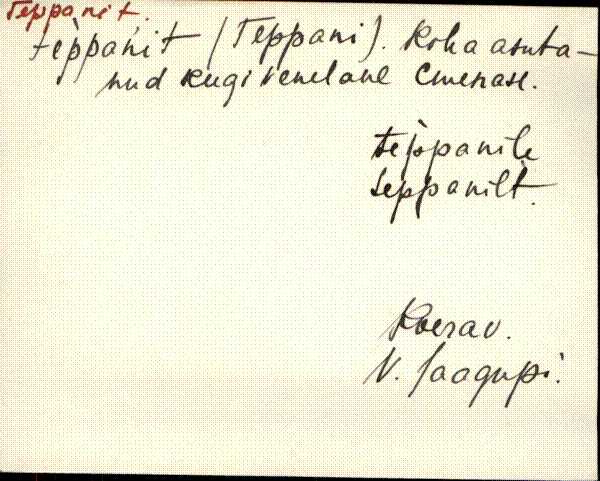 Teppanit.
tèppańit (Teppani). Koha asuta-
nud keegi venelane
teppanile
teppanilt.
Koerav.
V. Saagupi.